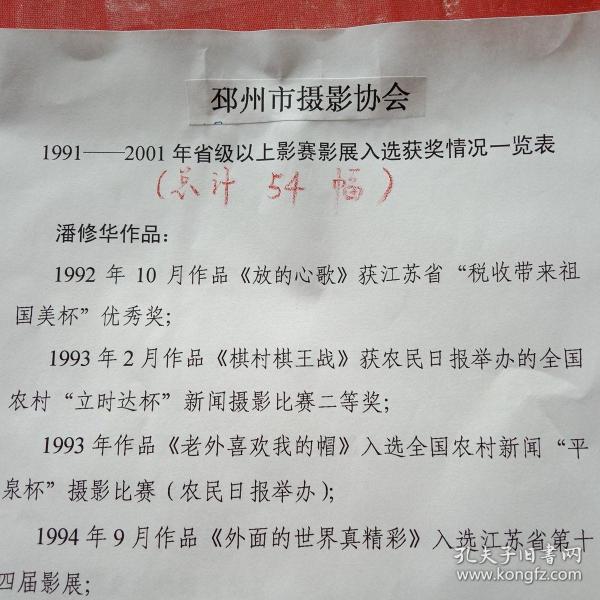 邳州市摄影协会
1991——2001年省级以上影赛影展入选获奖情况一览表
（总计 54 幅）
潘修华作品：
1992 年 10 月作品《放的心歌》获江苏省“税收带来祖
国美杯”优秀奖；
1993 年 2 月作品《棋村棋王战》获农民日报举办的全国
农村“立时达杯”新闻摄影比赛二等奖；
1993 年作品《老外喜欢我的帽》入选全国农村新闻“平
泉杯”摄影比赛（农民日报举办）；
1994 年 9 月作品《外面的世界真精彩》入选江苏省第十
四届影展；
孔夫子旧书网
www.kongfz.com